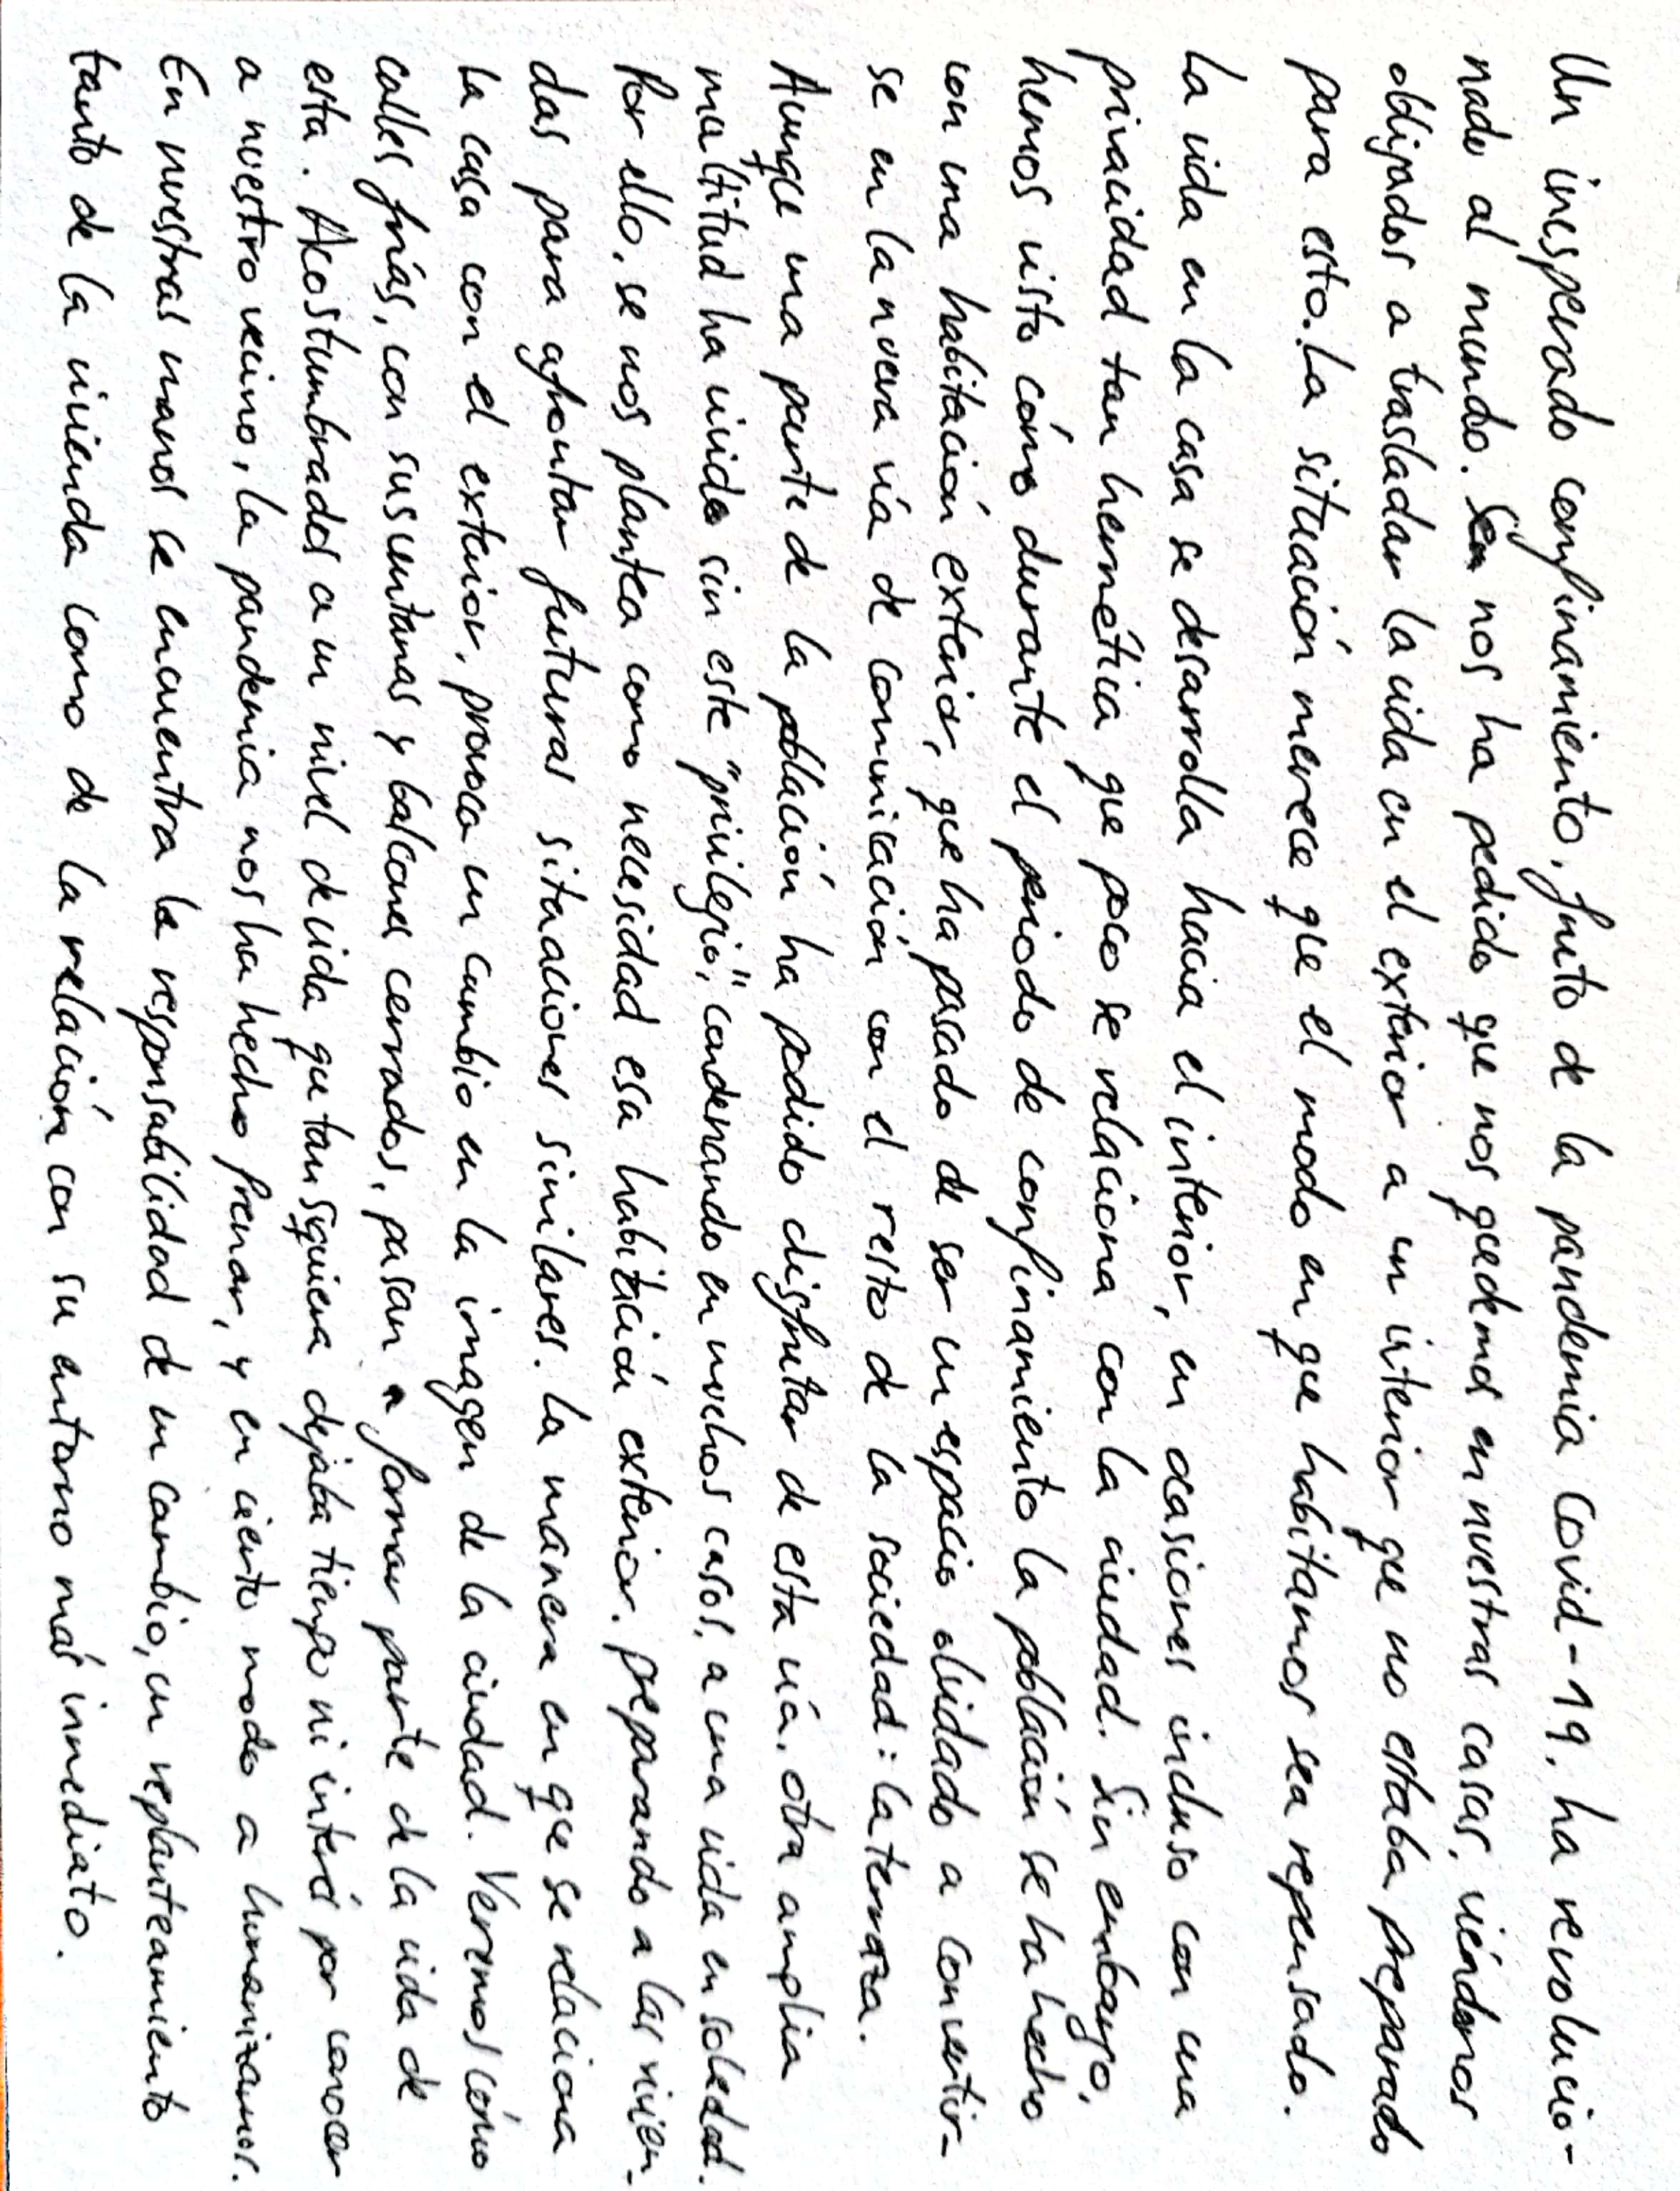 Un inesperado confinamiento, fruto de la pandemia Covid-19, ha revolucio-
nado al mundo. Se nos ha pedido que nos quedemos en nuestras casas, viéndonos
obligados a trasladar la vida en el exterior a un interior que no estaba preparado
para esto. La situación merece que el modo en que habitamos sea repensado.
La vida en la casa se desarrolla hacia el interior, en ocasiones incluso con una
privacidad tan hermética que poco se relaciona con la ciudad. Sin embargo,
hemos visto cómo durante el periodo de confinamiento la población se ha hecho
con una habitación exterior, que ha pasado de ser un espacio olvidado a convertir-
se en la nueva vía de comunicación con el resto de la sociedad: la terraza.
Aunque una parte de la población ha podido disfrutar de esta vía, otra amplia
multitud ha vivido sin este "privilegio", condenando en muchos casos, a una vida en soledad.
Por ello, se nos plantea como necesidad esa habitación exterior, preparando a las vivien-
das para afrontar futuras situaciones similares. La manera en que se relaciona
la casa con el exterior, provoca un cambio en la imagen de la ciudad. Veremos cómo
calles frías, con sus ventanas y balcones cerrados, pasan a formar parte de la vida de
esta. Acostumbrados a un nivel de vida que tan siquiera dejaba tiempo ni interés por conocer
a nuestro vecino, la pandemia nos ha hecho frenar, y en cierto modo a humanizarnos.
En nuestras manos se encuentra la responsabilidad de un cambio, un replanteamiento
tanto de la vivienda como de la relación con su entorno más inmediato.